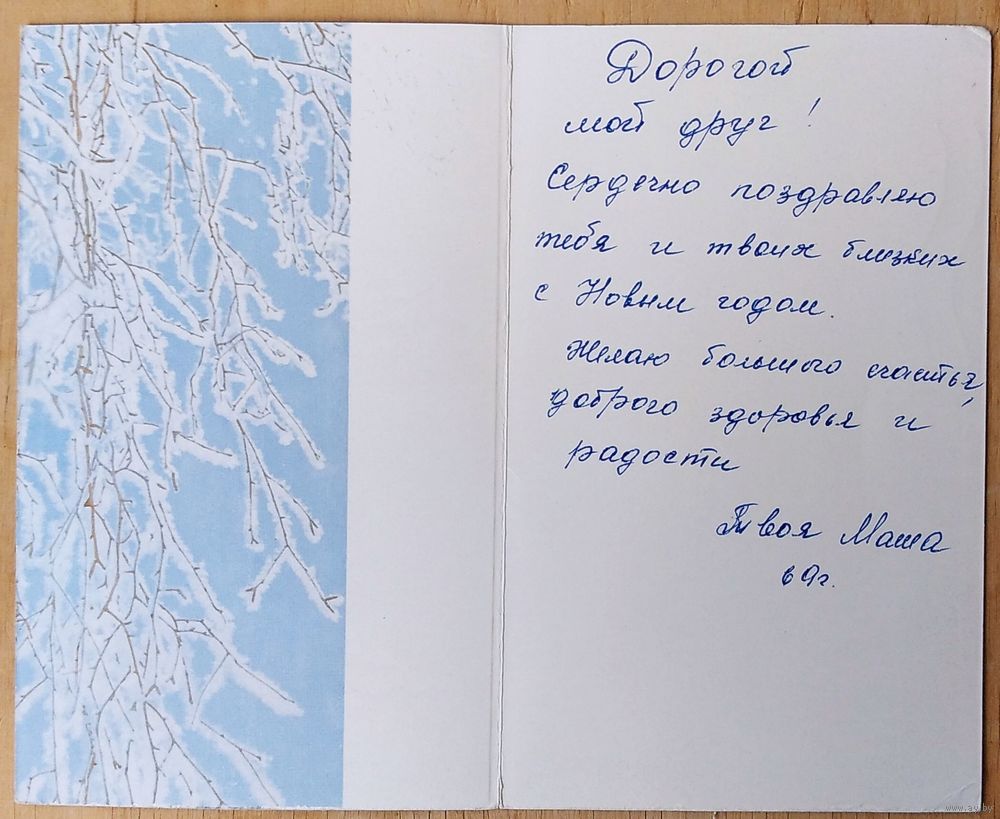 Дорогой
мой друг!
Сердечно поздравляю
тебя и твоих близких
с Новым годом.
Желаю большого счастья,
доброго здоровья и
радости
Твоя Маша
69г.
www.ay.by